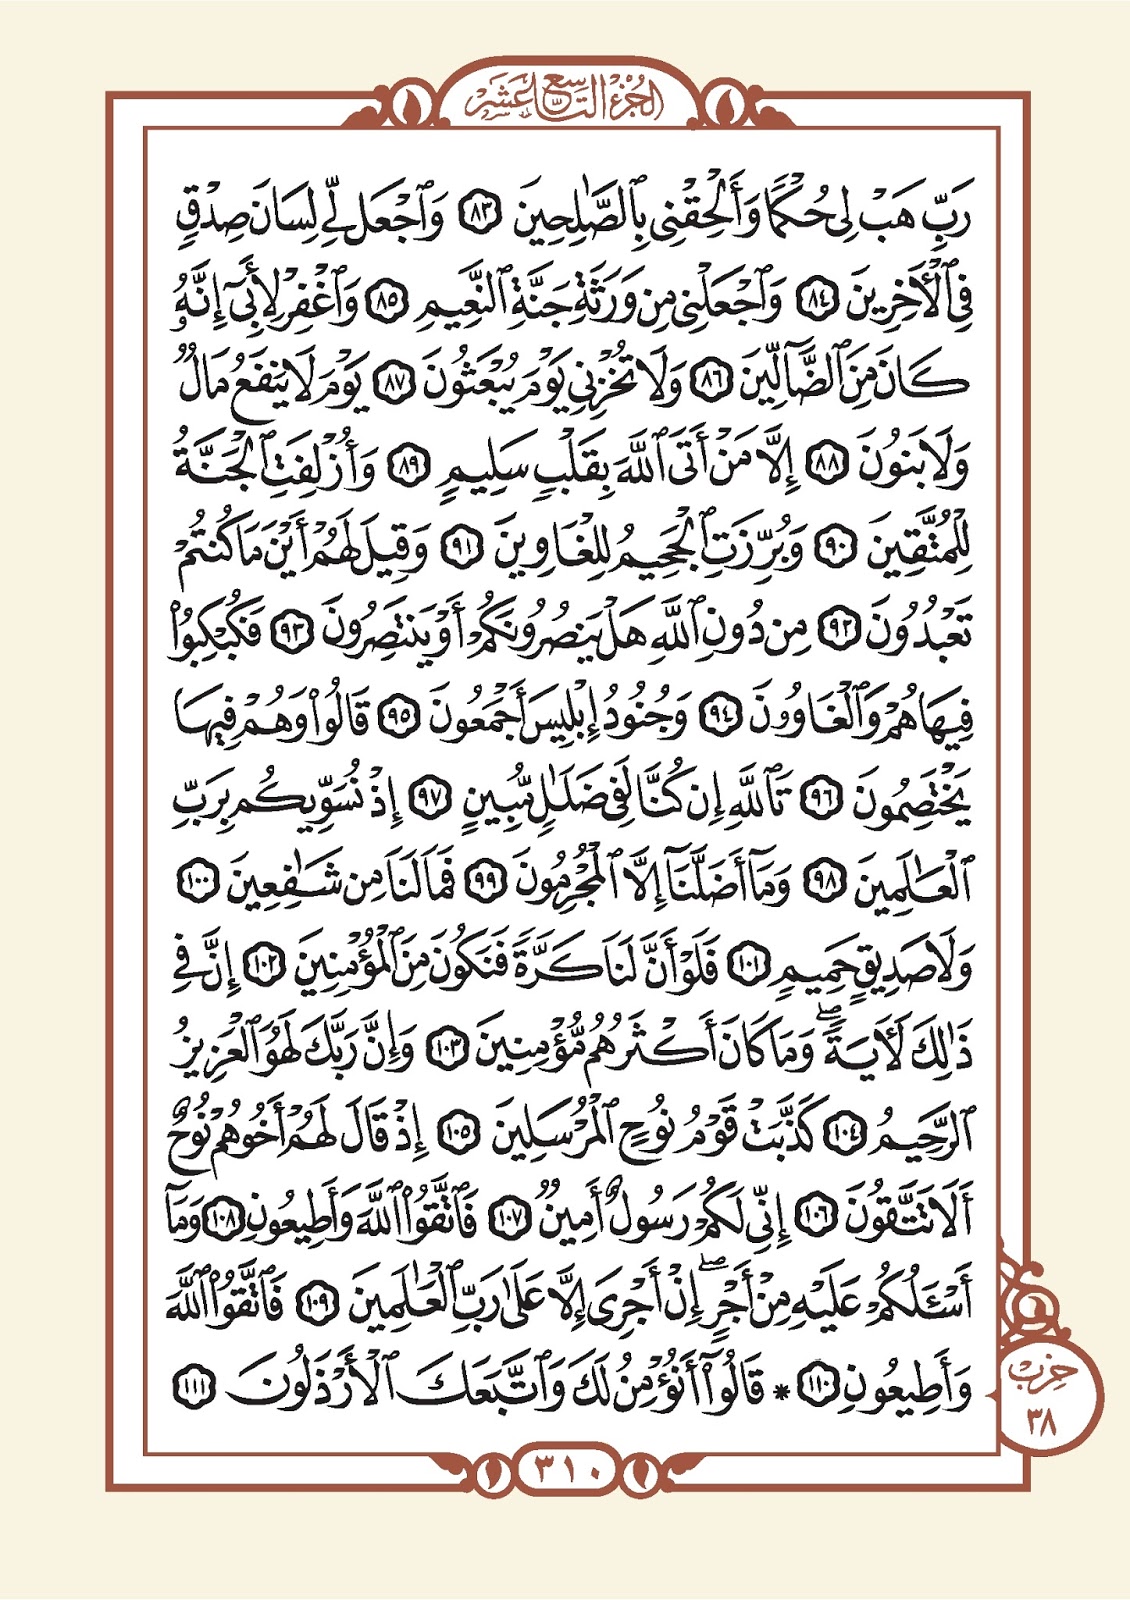 الجُزْءُ التَّاسِعَ عَشَرَ
رَبِّ هَبْ لِي حُكْمًا وَأَلْحِقْنِي بِٱلصَّٰلِحِينَ ٨٣ وَٱجْعَل لِّي لِسَانَ صِدْقٍ
فِي ٱلْأٓخِرِينَ ٨٤ وَٱجْعَلْنِي مِن وَرَثَةِ جَنَّةِ ٱلنَّعِيمِ ٨٥ وَٱغْفِرْ لِأَبِيٓ إِنَّهُۥ
كَانَ مِنَ ٱلضَّآلِّينَ ٨٦ وَلَا تُخْزِنِي يَوْمَ يُبْعَثُونَ ٨٧ يَوْمَ لَا يَنفَعُ مَالٌ
وَلَا بَنُونَ ٨٨ إِلَّا مَنْ أَتَى ٱللَّهَ بِقَلْبٍ سَلِيمٍ ٨٩ وَأُزْلِفَتِ ٱلْجَنَّةُ
لِلْمُتَّقِينَ ٩٠ وَبُرِّزَتِ ٱلْجَحِيمُ لِلْغَاوِينَ ٩١ وَقِيلَ لَهُمْ أَيْنَ مَا كُنتُمْ
تَعْبُدُونَ ٩٢ مِن دُونِ ٱللَّهِ هَلْ يَنصُرُونَكُمْ أَوْ يَنتَصِرُونَ ٩٣ فَكُبْكِبُوا۟
فِيهَا هُمْ وَٱلْغَاوُۥنَ ٩٤ وَجُنُودُ إِبْلِيسَ أَجْمَعُونَ ٩٥ قَالُوا۟ وَهُمْ فِيهَا
يَخْتَصِمُونَ ٩٦ تَٱللَّهِ إِن كُنَّا لَفِي ضَلَٰلٍ مُّبِينٍ ٩٧ إِذْ نُسَوِّيكُم بِرَبِّ
ٱلْعَٰلَمِينَ ٩٨ وَمَآ أَضَلَّنَآ إِلَّا ٱلْمُجْرِمُونَ ٩٩ فَمَا لَنَا مِن شَٰفِعِينَ ١٠٠
وَلَا صَدِيقٍ حَمِيمٍ ١٠١ فَلَوْ أَنَّ لَنَا كَرَّةً فَنَكُونَ مِنَ ٱلْمُؤْمِنِينَ ١٠٢ إِنَّ فِي
ذَٰلِكَ لَأٓيَةً ۖ وَمَا كَانَ أَكْثَرُهُم مُّؤْمِنِينَ ١٠٣ وَإِنَّ رَبَّكَ لَهُوَ ٱلْعَزِيزُ
ٱلرَّحِيمُ ١٠٤ كَذَّبَتْ قَوْمُ نُوحٍ ٱلْمُرْسَلِينَ ١٠٥ إِذْ قَالَ لَهُمْ أَخُوهُمْ نُوحٌ
أَلَا تَتَّقُونَ ١٠٦ إِنِّي لَكُمْ رَسُولٌ أَمِينٌ ١٠٧ فَٱتَّقُوا۟ ٱللَّهَ وَأَطِيعُونِ ١٠٨ وَمَآ
أَسْـَٔلُكُمْ عَلَيْهِ مِنْ أَجْرٍ ۖ إِنْ أَجْرِيَ إِلَّا عَلَىٰ رَبِّ ٱلْعَٰلَمِينَ ١٠٩ فَٱتَّقُوا۟ ٱللَّهَ
وَأَطِيعُونِ ١١٠ * قَالُوٓا۟ أَنُؤْمِنُ لَكَ وَٱتَّبَعَكَ ٱلْأَرْذَلُونَ ١١١
حِزْب
٣٨
٣١٠